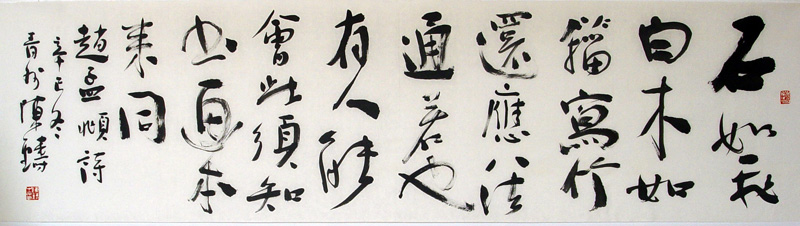 石如飛
白木如
籀寫竹
還應八法
通若也
有人能
會此須知
書畫本
來同
趙孟頫詩
辛巳冬
青州陳